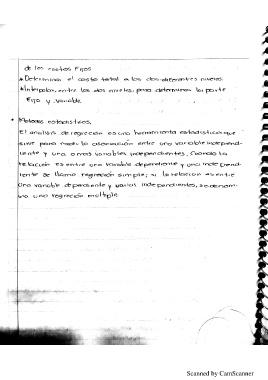 de los costos Fijos
* Determinar el costo total a los dos diferentes niveles.
* Interpolar entre los dos niveles para determinar la parte
Fija y Variable
• Metodos estadisticos.
El analisis de regresion es una herramienta estadistica que
sirve para medir la asociacion entre una variable independ-
iente y una o mas variables independientes. Cuando la
relacion es entre una variable dependiente y una independ-
iente se llama regresion simple; si la relacion es entre
una variable dependiente y varias independientes, se denom-
ina una regresion multiple
Scanned by CamScanner